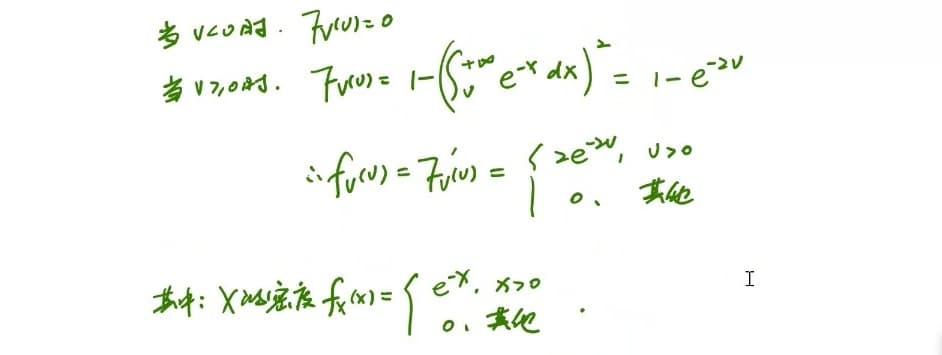 当 v<0时. F_V(v)=0
当 v≥0时. F_V(v)= 1-(∫_v^{+∞} e^{-x} dx)^2 = 1-e^{-2v}
∴ f_V(v) = F_V'(v) = { 2e^{-2v}, v>0
0、 其他
其中: X的密度 f_X(x) = { e^{-x}, x>0
0、其他 .